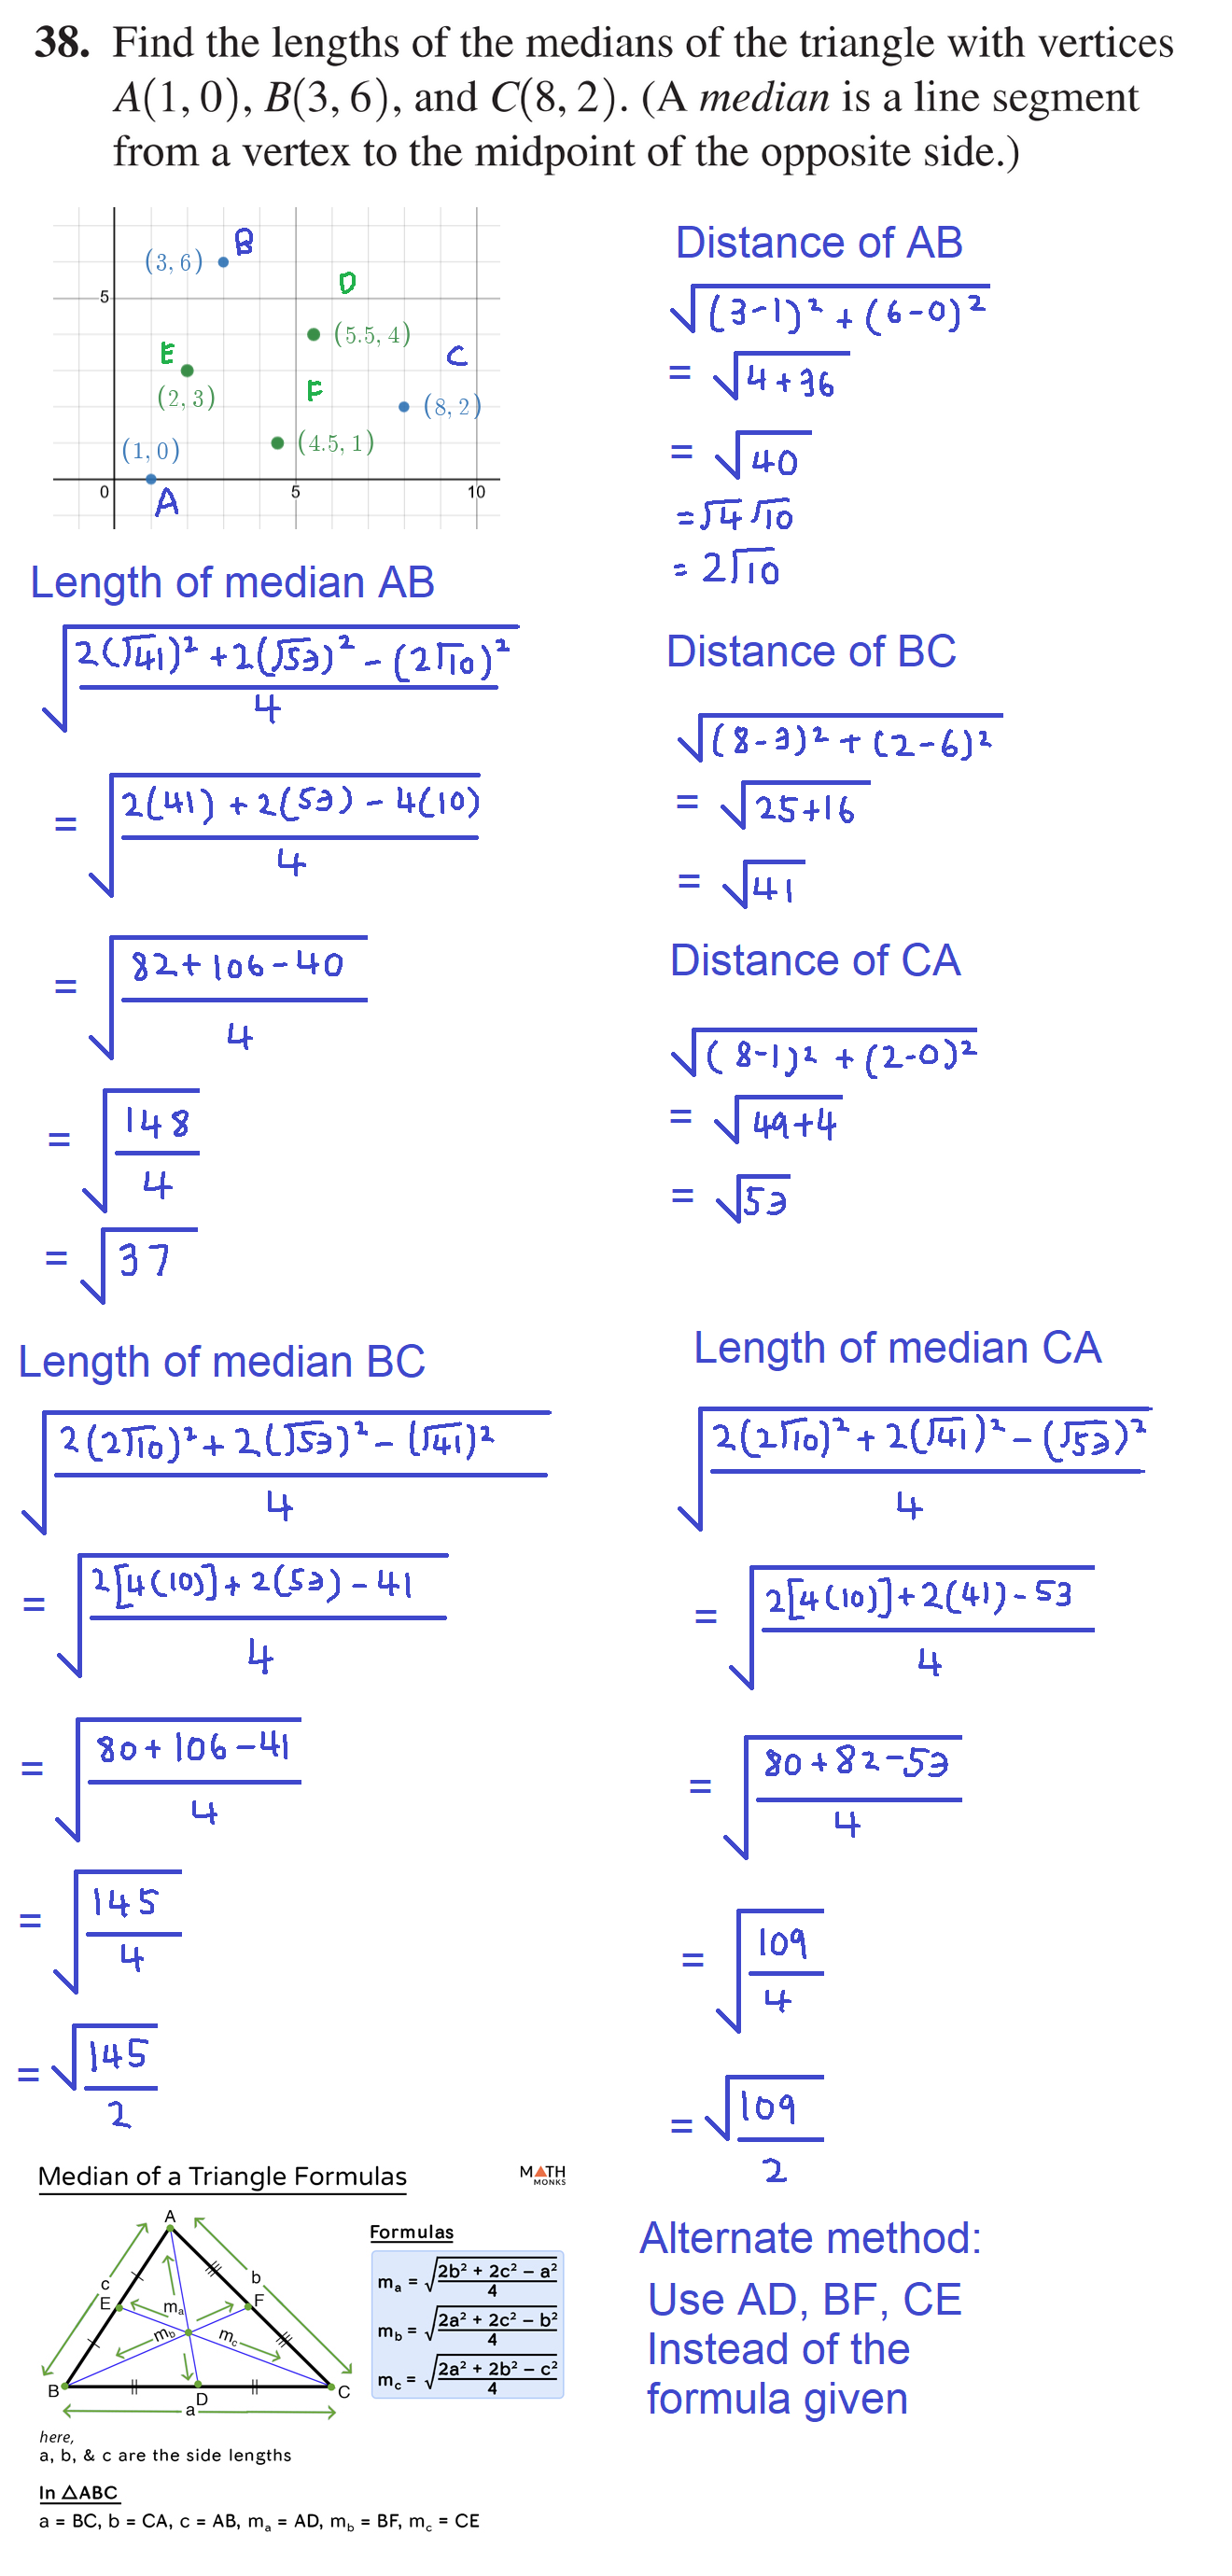 38. Find the lengths of the medians of the triangle with vertices
A(1, 0), B(3, 6), and C(8, 2). (A median is a line segment
from a vertex to the midpoint of the opposite side.)
(3, 6) B
5
D
(5.5, 4)
E
C
(2, 3)
F
(8, 2)
(1, 0)
(4.5, 1)
0 5 10
A
Distance of AB
√((3-1)² + (6-0)²)
= √(4+36)
= √40
= √4 √10
= 2√10
Length of median AB
√((2(√41)² + 2(√53)² - (2√10)²)/4)
= √((2(41) + 2(53) - 4(10))/4)
= √((82 + 106 - 40)/4)
= √(148/4)
= √37
Distance of BC
√((8-3)² + (2-6)²)
= √(25+16)
= √41
Distance of CA
√((8-1)² + (2-0)²)
= √(49+4)
= √53
Length of median BC
√((2(2√10)² + 2(√53)² - (√41)²)/4)
= √((2[4(10)] + 2(53) - 41)/4)
= √((80 + 106 - 41)/4)
= √(145/4)
= √145/2
Length of median CA
√((2(2√10)² + 2(√41)² - (√53)²)/4)
= √((2[4(10)] + 2(41) - 53)/4)
= √((80 + 82 - 53)/4)
= √(109/4)
= √109/2
Median of a Triangle Formulas
MATH
MONKS
A
c
b
E
F
mₐ
m_b
m_c
B
D
C
a
Formulas
mₐ = √((2b² + 2c² – a²)/4)
m_b = √((2a² + 2c² – b²)/4)
m_c = √((2a² + 2b² – c²)/4)
here,
a, b, & c are the side lengths
In △ABC
a = BC, b = CA, c = AB, mₐ = AD, m_b = BF, m_c = CE
Alternate method:
Use AD, BF, CE
Instead of the
formula given